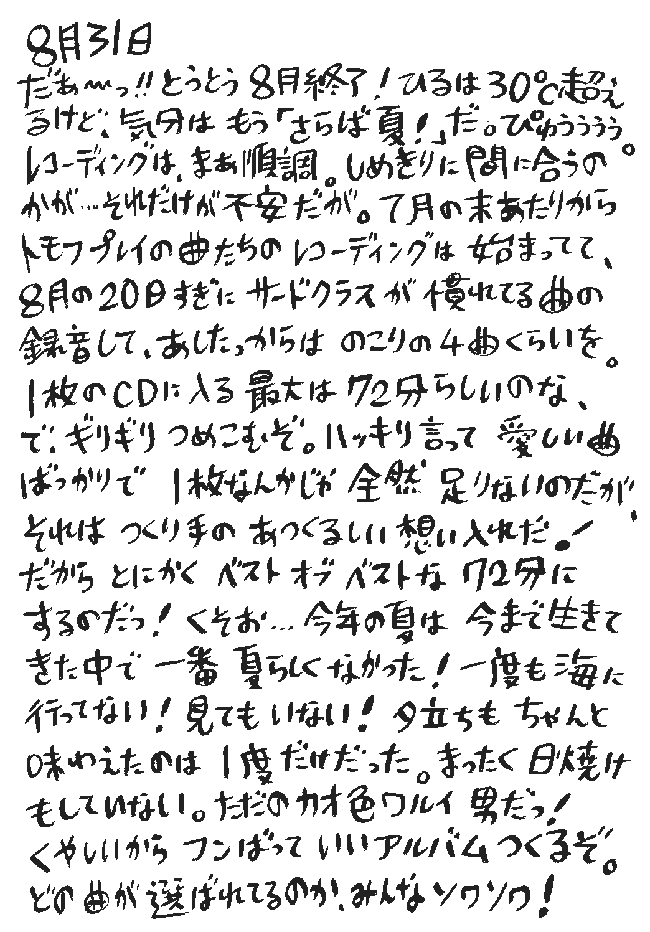 8月31日
だぁ〜っ!!とうとう8月終了!ひるは30℃超え
るけど、気分はもう「さらば夏!」だ。ぴゅうぅぅぅ。
レコーディングは、まぁ順調。しめきりに間に合うの
かが…それだけが不安だが。7月の末あたりから
トモフプレイの曲たちのレコーディングは始まってて、
8月の20日すぎにサードクラスが慣れてる曲の
録音して、あしたっからはのこりの4曲くらいを。
1枚のCDに入る最大は72分らしいのな、
で、ギリギリつめこむぞ。ハッキリ言って愛しい曲
ばっかりで1枚なんかじゃ全然足りないのだが、
それはつくり手のあつくるしい想い入れだ!
だからとにかくベストオブベストな72分に
するのだっ!くそお…今年の夏は今まで生きて
きた中で一番夏らしくなかった!一度も海に
行ってない!見てもいない!夕立ちもちゃんと
味わえたのは1度だけだった。まったく日焼け
もしていない。ただのカオ色ワルイ男だっ!
くやしいからフンばっていいアルバムつくるぞ。
どの曲が選ばれてるのか、みんなソワソワ!